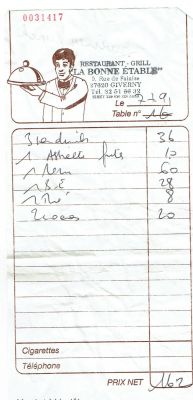 0031417
RESTAURANT - GRILL
"LA BONNE ÉTABLE"
5, Rue de Falaise
27620 GIVERNY
Tél. 32 51 66 32
Le 7-9
Table n° 16
3 sandwichs 36
1 Assiette frites 10
1 Menu 60
1 28
1 Thé 8
2 cocas 20
Cigarettes
Téléphone
PRIX NET 162